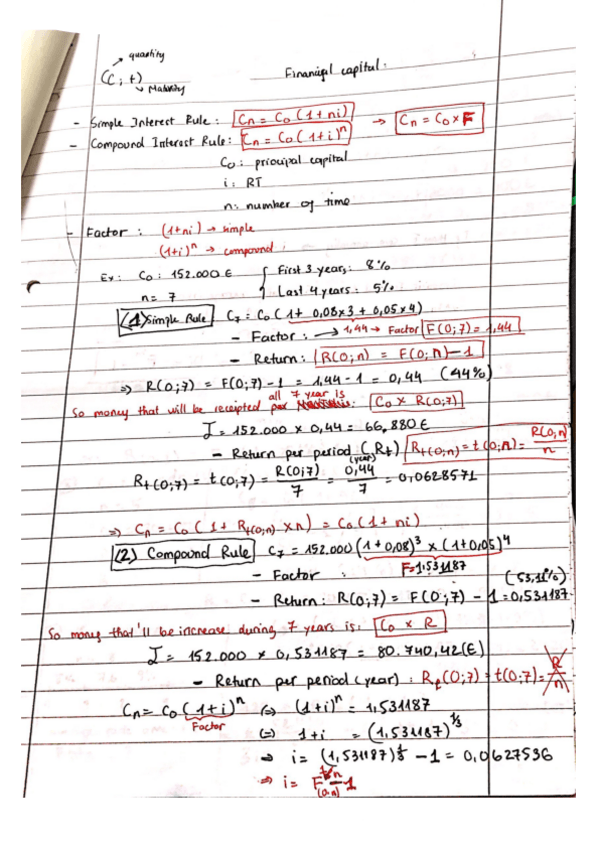 quantity
(C; t)
Maturity
Financial capital:
- Simple Interest Rule: Cn = Co (1+ni) → Cn = Co x F
- Compound Interest Rule: Cn = Co (1+i)^n
Co: principal capital
i: RT
n: number of time
- Factor: (1+ni) → simple
(1+i)^n → compound;
Ex: Co: 152.000 € { First 3 years: 8%
n = 7 Last 4 years: 5%
(1) Simple Rule C7 = Co (1 + 0,08x3 + 0,05x4)
- Factor: → 1,44 → Factor F(0;7) = 1,44
- Return: R(0;n) = F(0;n) - 1
⇒ R(0;7) = F(0;7) - 1 = 1,44 - 1 = 0,44 (44%)
all 7 year is
So money that will be receipted per: Co x R(0;7)
I = 152.000 x 0,44 = 66,880 €
- Return per period (Rt) Rt(0;n) = t(0;n) = R(0;n)/n
(year)
Rt(0;7) = t(0;7) = R(0;7)/7 = 0,44/7 = 0,0628571
⇒ Cn = Co (1 + Rt(0;n) x n) = Co (1 + ni)
(2) Compound Rule C7 = 152.000 (1+0,08)^3 x (1+0,05)^4
- Factor : F=1,531187
(53,11%)
- Return: R(0;7) = F(0;7) - 1 = 0,531187
So money that'll be increase during 7 years is: Co x R
I = 152.000 x 0,531187 = 80.740,42(€)
- Return per period (year): Rt(0;7) = t(0;7) = R/n
Cn = Co (1+i)^n (=) (1+i)^n = 1,531187
Factor
(=) 1+i = (1,531187)^1/7
⇒ i = (1,531187)^1/7 - 1 = 0,0627536
⇒ i = F^1/n - 1
(0;n)